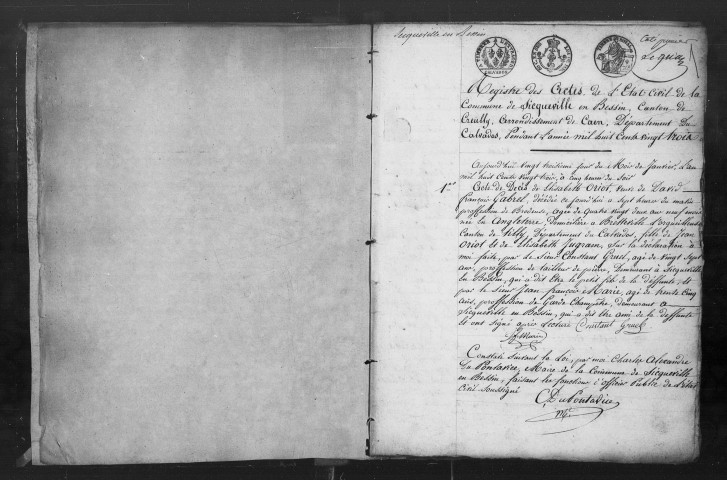 Secqueville en Bessin
Registre des Actes de l'Etat Civil de la
Commune de Secqueville en Bessin, Canton de
Creully, Arrondissement de Caen, Département du
Calvados, Pendant l'année mil huit cents vingt trois
Aujourd'hui vingt troisieme jour du Mois de Janvier, l'an
mil huit cents vingt trois, à cinq heures du soir
1er Acte de Decès de Elisabeth Oriot, veuve de David
françois Gabrel, décédée ce jourd'hui a sept heures du matin
proffession de Brodeuse, agée de quatre vingt deux ans neuf mois
née en Angleterre Domiciliée à Bretteville l'orgueilleuse
Canton de Tilly, Département du Calvados, fille de Jean
Oriot et de Elisabeth Jugram, sur la déclaration à
moi faite, par le Sieur Constant Gruel, agé de vingt sept
ans, proffession de tailleur de pierre, Demeurant à Secqueville
en Bessin, qui a dit être le petit fils de la deffunte, et
par le Sieur Jean françois Marie, agé de trente cinq
ans, proffession de Garde Champêtre, demeurant a
Secqueville en Bessin, qui a dit être ami de la deffunte
et ont signé après lecture Constant Gruel
Constaté suivant la Loi, par moi Charles Alexandre
Du Pontavice, Maire de la Commune de Secqueville
en Bessin, faisant les fonctions d'officier Public de l'Etat
Civil Soussigné
C. Du Pontavice